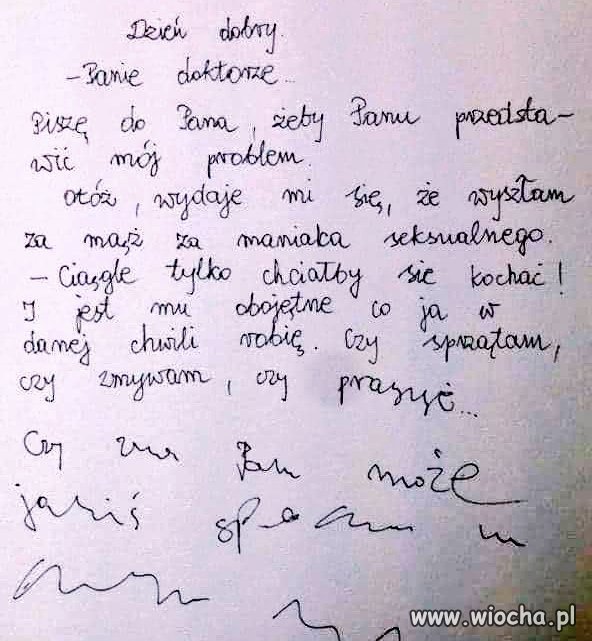 Dzień dobry.
- Panie doktorze...
Piszę do Pana, żeby Panu przedsta-
wić mój problem.
Otóż, wydaje mi się, że wyszłam
za mąż za maniaka seksualnego.
- Ciągle tylko chciałby się kochać!
I jest mu obojętne co ja w
danej chwili robię. Czy sprzątam,
czy zmywam, czy
Czy zna Pan może
jakiś
www.wiocha.pl